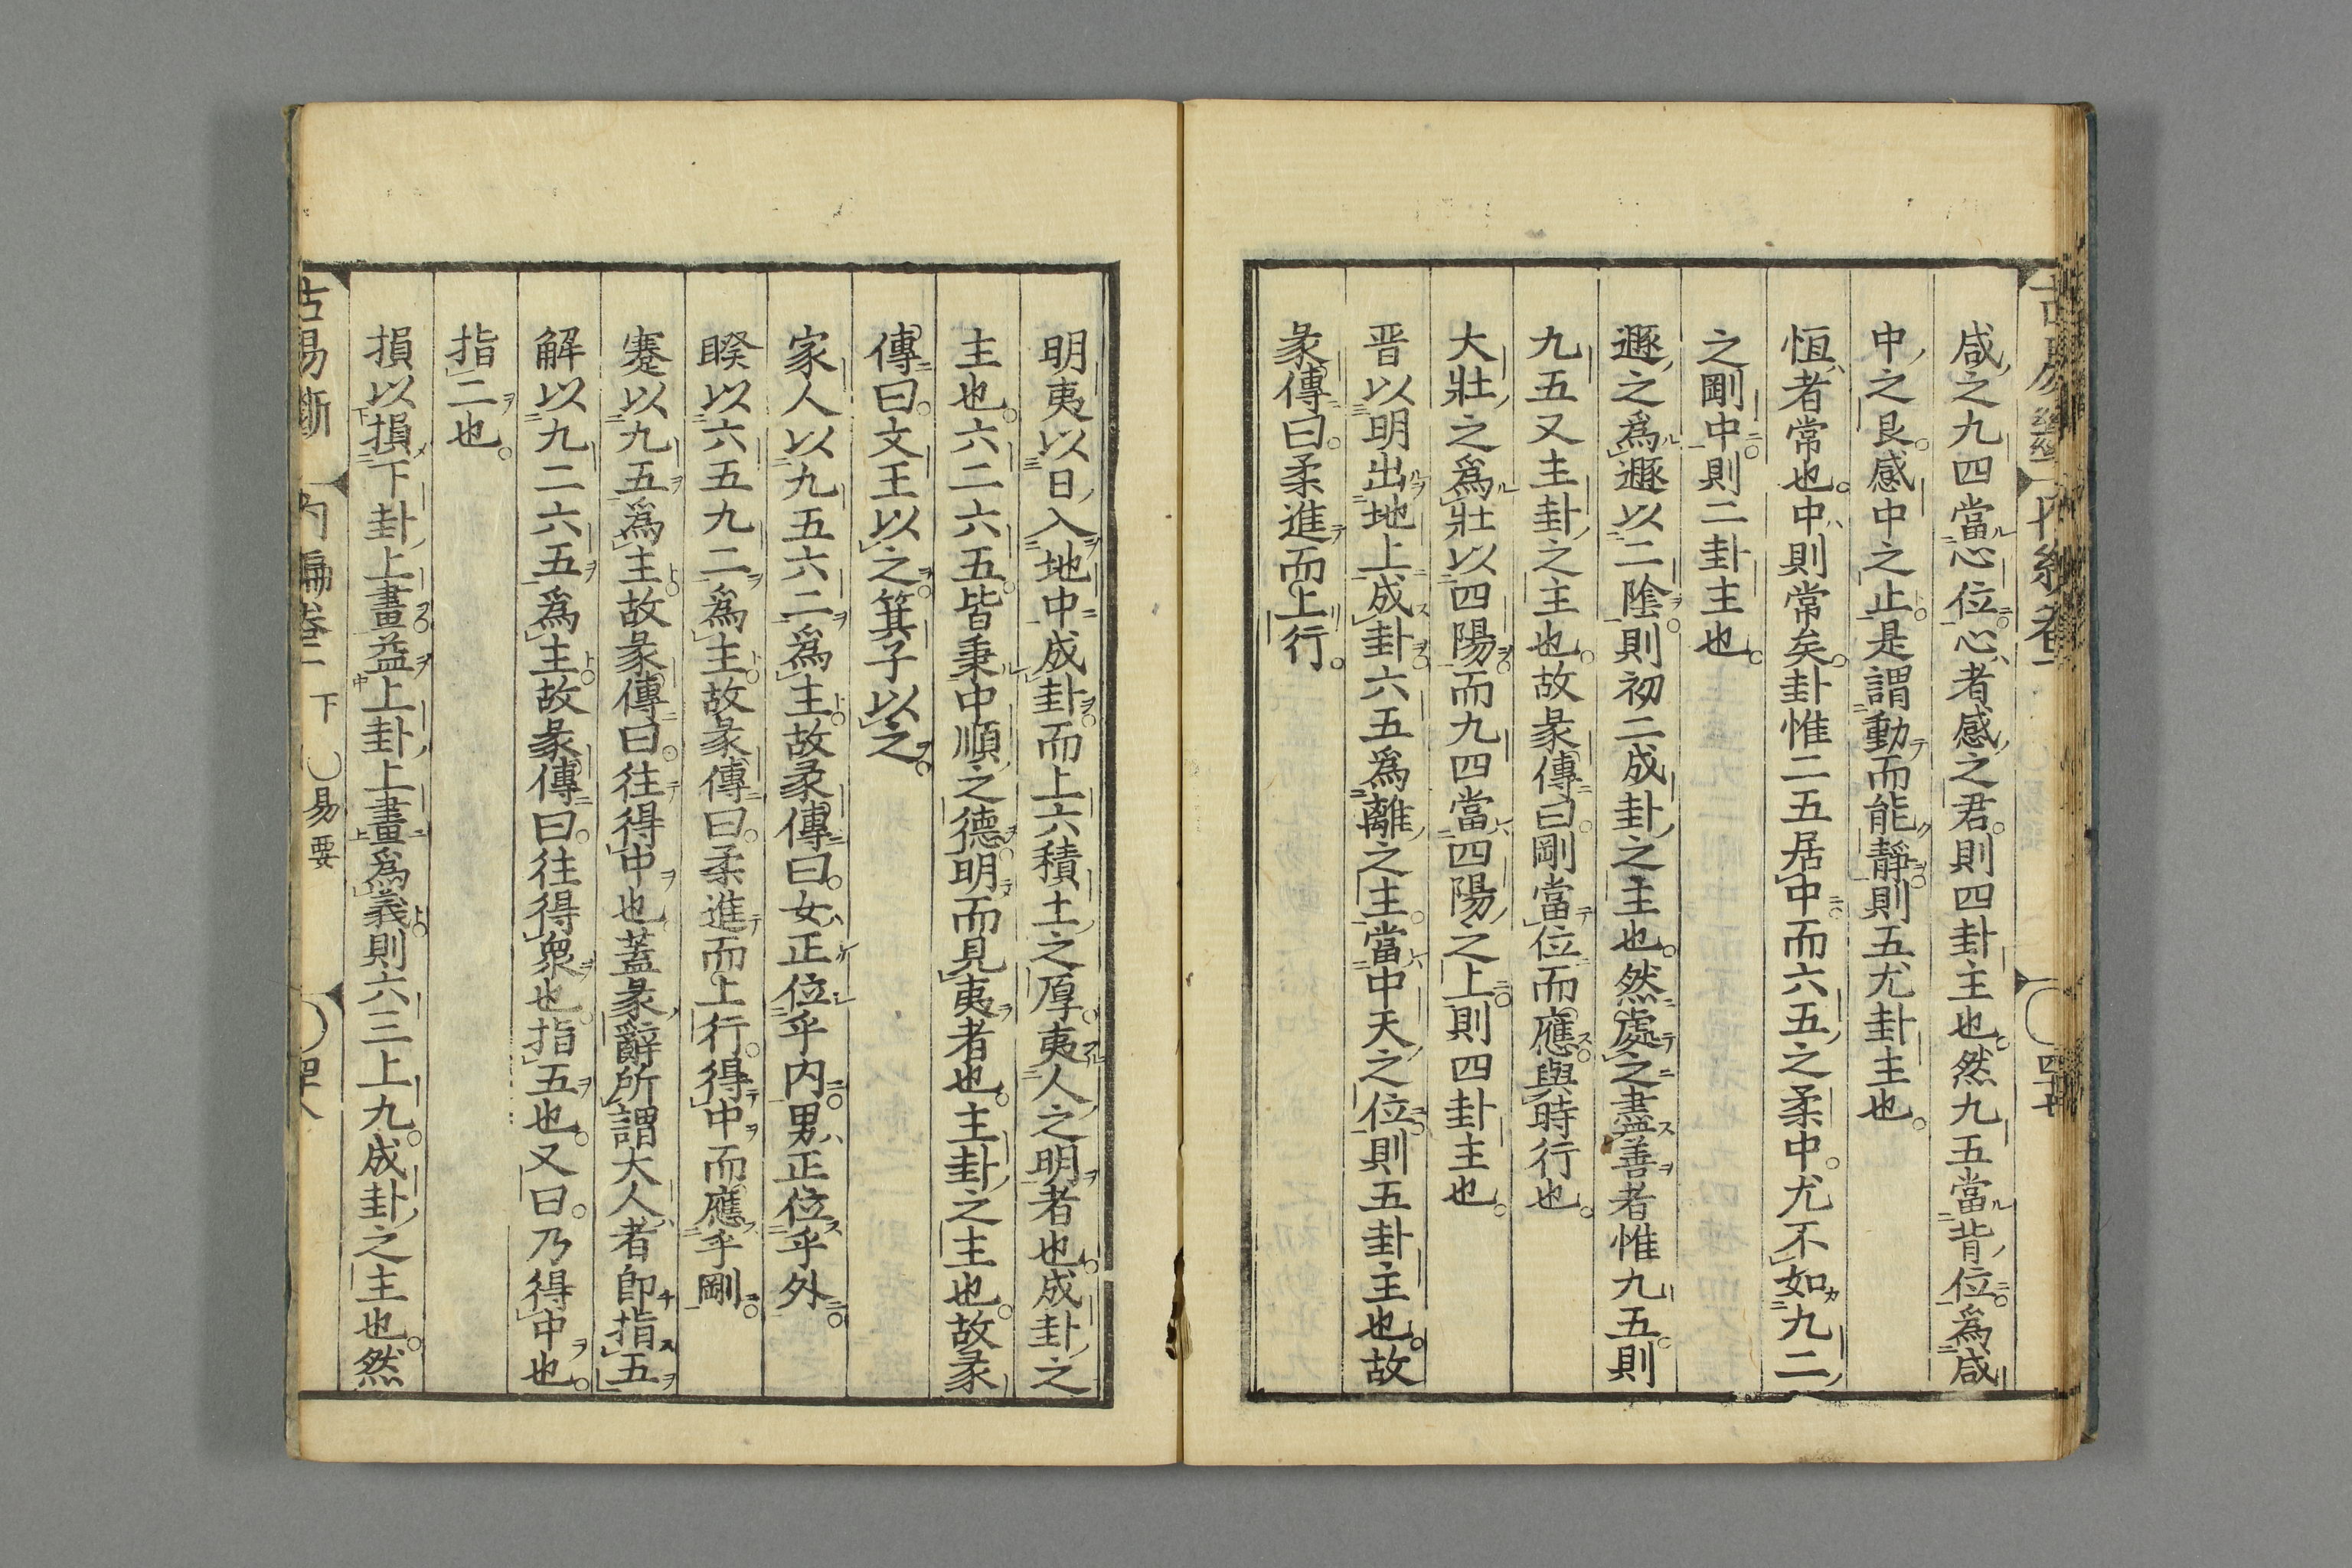 咸之九四當心位心者感之君則四卦主也然九五當背位爲咸
中之艮感中之止是謂動而能靜則五尤卦主也
恒者常也中則常矣卦惟二五居中而六五之柔中尤不如九二
之剛中則二卦主也
遯之爲遯以二陰則初二成卦之主也然處之盡善者惟九五則
九五又主卦之主也故彖傳曰剛當位而應與時行也
大壯之爲壯以四陽而九四當四陽之上則四卦主也
晋以明出地上成卦六五爲離之主當中天之位則五卦主也故
彖傳曰柔進而上行
明夷以日入地中成卦而上六積土之厚夷人之明者也成卦之
主也六二六五皆秉中順之德明而見夷者也主卦之主也故彖
傳曰文王以之箕子以之
家人以九五六二爲主故彖傳曰女正位乎内男正位乎外
睽以六五九二爲主故彖傳曰柔進而上行得中而應乎剛
蹇以九五爲主故彖傳曰往得中也蓋彖辭所謂大人者即指五
解以九二六五爲主故彖傳曰往得衆也指五也又曰乃得中也
指二也
損以損下卦上畫益上卦上畫爲義則六三上九成卦之主也然
古易斷 内編卷二 下 易要 四十八